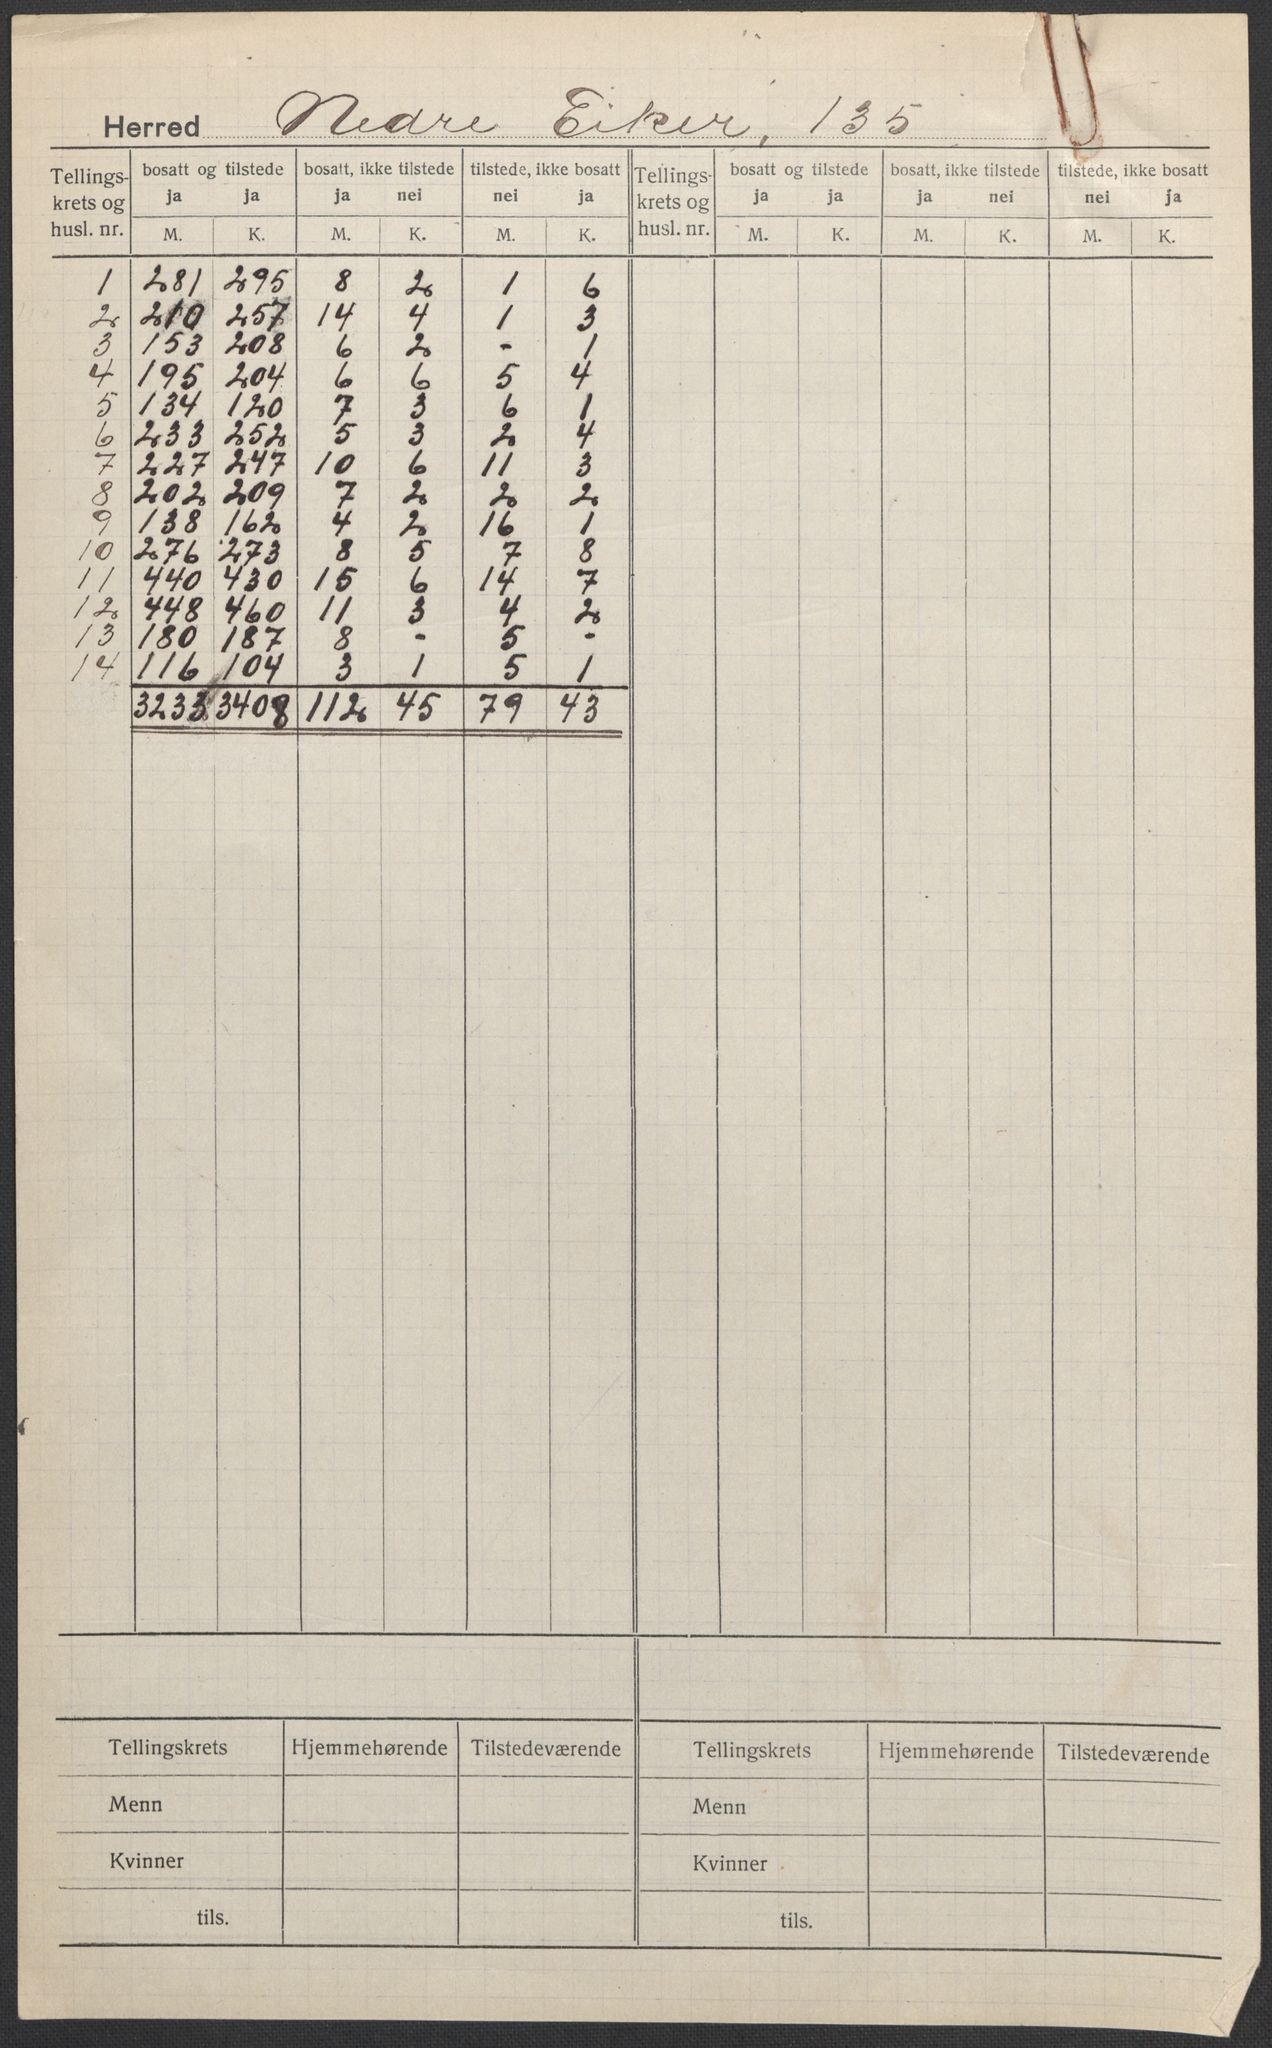 Herred Nedre Eiker, 135
Tellings- bosatt og tilstede bosatt, ikke tilstede tilstede, ikke bosatt Tellings- bosatt og tilstede bosatt, ikke tilstede tilstede, ikke bosatt
krets og ja ja ja nei nei ja krets og ja ja ja nei nei ja
husl. nr. M. K. M. K. M. K. husl. nr. M. K. M. K. M. K.
1 281 295 8 2 1 6
2 210 257 14 4 1 3
3 153 208 6 2 - 1
4 195 204 6 6 5 4
5 134 120 7 3 6 1
6 233 252 5 3 2 4
7 227 247 10 6 11 3
8 202 209 7 2 2 2
9 138 162 4 2 16 1
10 276 273 8 5 7 8
11 440 430 15 6 14 7
12 448 460 11 3 4 2
13 180 187 8 - 5 -
14 116 104 3 1 5 1
3233 3408 112 45 79 43
Tellingskrets Hjemmehørende Tilstedeværende Tellingskrets Hjemmehørende Tilstedeværende
Menn Menn
Kvinner Kvinner
tils. tils.